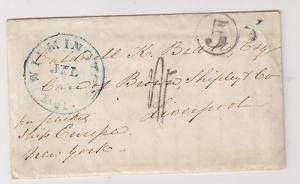 WILMINGTON
JUL
Del.
5
Caldwell K. Esq
Care of Brown, Shipley & Co
Liverpool
per packet
Ship Europa
New York